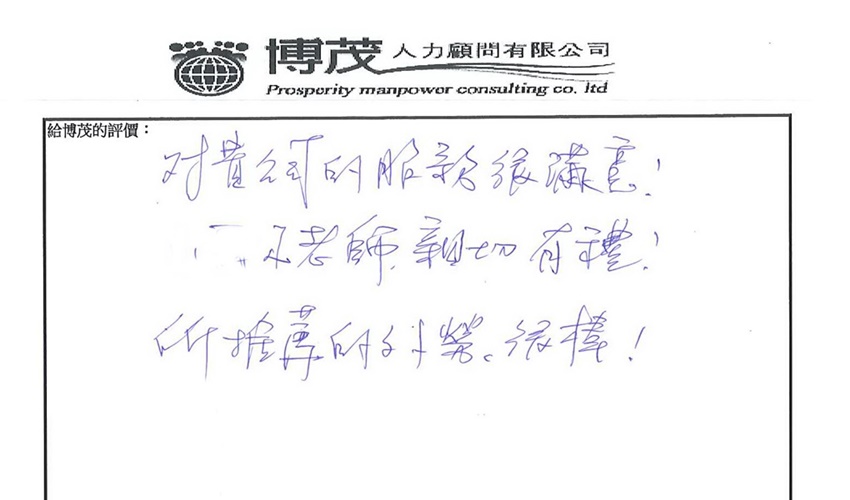 博茂人力顧問有限公司
Prosperity manpower consulting co. ltd
給博茂的評價：
对貴公司的服務很滿意！
老師親切有禮！
所推薦的外勞、很棒！